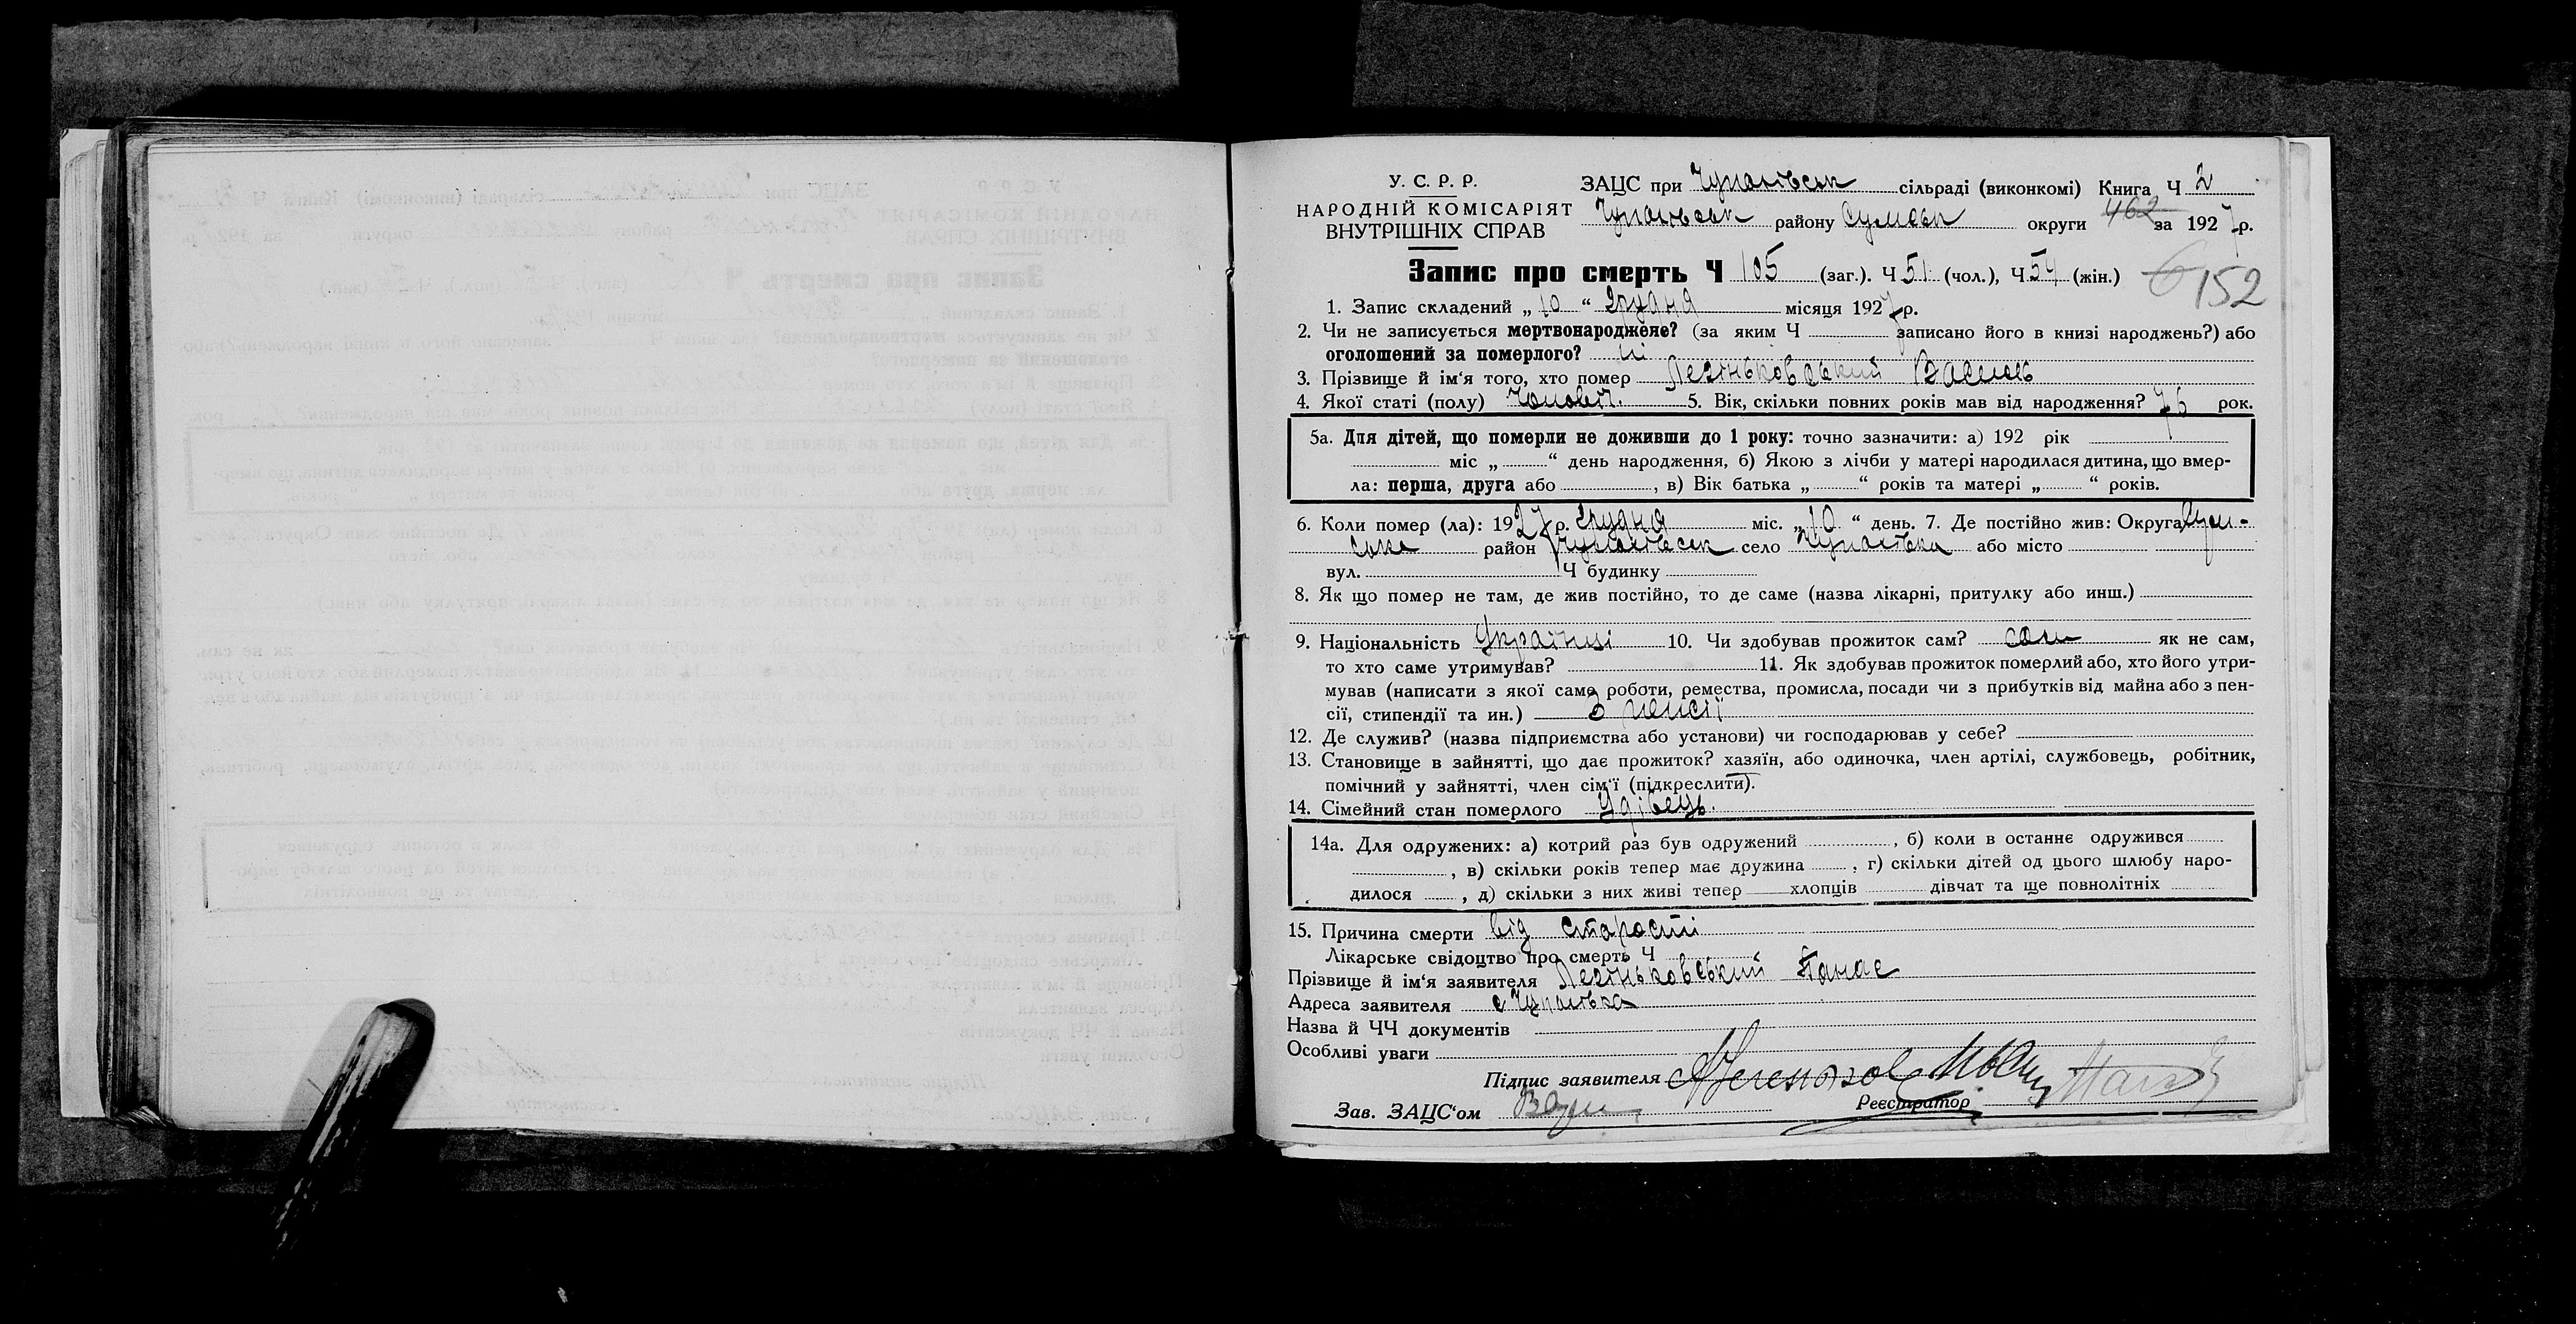 У. С. Р. Р.
НАРОДНІЙ КОМІСАРІЯТ
ВНУТРІШНІХ СПРАВ
ЗАЦС при Чупахівськ сільраді (виконкомі) Книга Ч 2
Чупахівськ району Сумськ округи 462 за 1927 р.
Запис про смерть Ч 105 (заг.). Ч 51 (чол.), Ч 54 (жін.)
6 152
1. Запис складений „ 10 “ Грудня місяця 1927 р.
2. Чи не записується мертвонароджене? (за яким Ч записано його в книзі народжень?) або
оголошений за померлого? ні
3. Прізвище й ім‘я того, хто помер Легіньковський Василь
4. Якої статі (полу) Чоловіч. 5. Вік, скільки повних років мав від народження? 76 рок.
5а. Для дітей, що померли не доживши до 1 року: точно зазначити: а) 192 рік
міс „ “ день народження, б) Якою з лічби у матері народилася дитина, що вмер-
ла: перша, друга або , в) Вік батька „ “ років та матері „ “ років.
6. Коли помер (ла): 1927 р. Грудня міс. „ 10 “ день. 7. Де постійно жив: Округа Сум-
ська район Чупахівськ село Чупахівка або місто
вул. Ч будинку
8. Як що помер не там, де жив постійно, то де саме (назва лікарні, притулку або инш.)
9. Національність Українці 10. Чи здобував прожиток сам? сам як не сам,
то хто саме утримував? 11. Як здобував прожиток померлий або, хто його утри-
мував (написати з якої саме роботи, ремества, промисла, посади чи з прибутків від майна або з пен-
сії, стипендії та ин.) З пенсії
12. Де служив? (назва підприємства або установи) чи господарював у себе?
13. Становище в зайнятті, що дає прожиток? хазяїн, або одиночка, член артілі, службовець, робітник,
помічний у зайнятті, член сім‘ї (підкреслити).
14. Сімейний стан померлого Удівець.
14а. Для одружених: а) котрий раз був одружений , б) коли в останнє одружився
, в) скільки років тепер має дружина , г) скільки дітей од цього шлюбу наро-
дилося , д) скільки з них живі тепер хлопців дівчат та ще повнолітніх
15. Причина смерти від старости
Лікарське свідоцтво про смерть Ч
Прізвище й ім‘я заявителя Легіньковський Панас
Адреса заявителя с Чупахівка
Назва й ЧЧ документів
Особливі уваги
Підпис заявителя
Зав. ЗАЦС‘ом Реєстратор